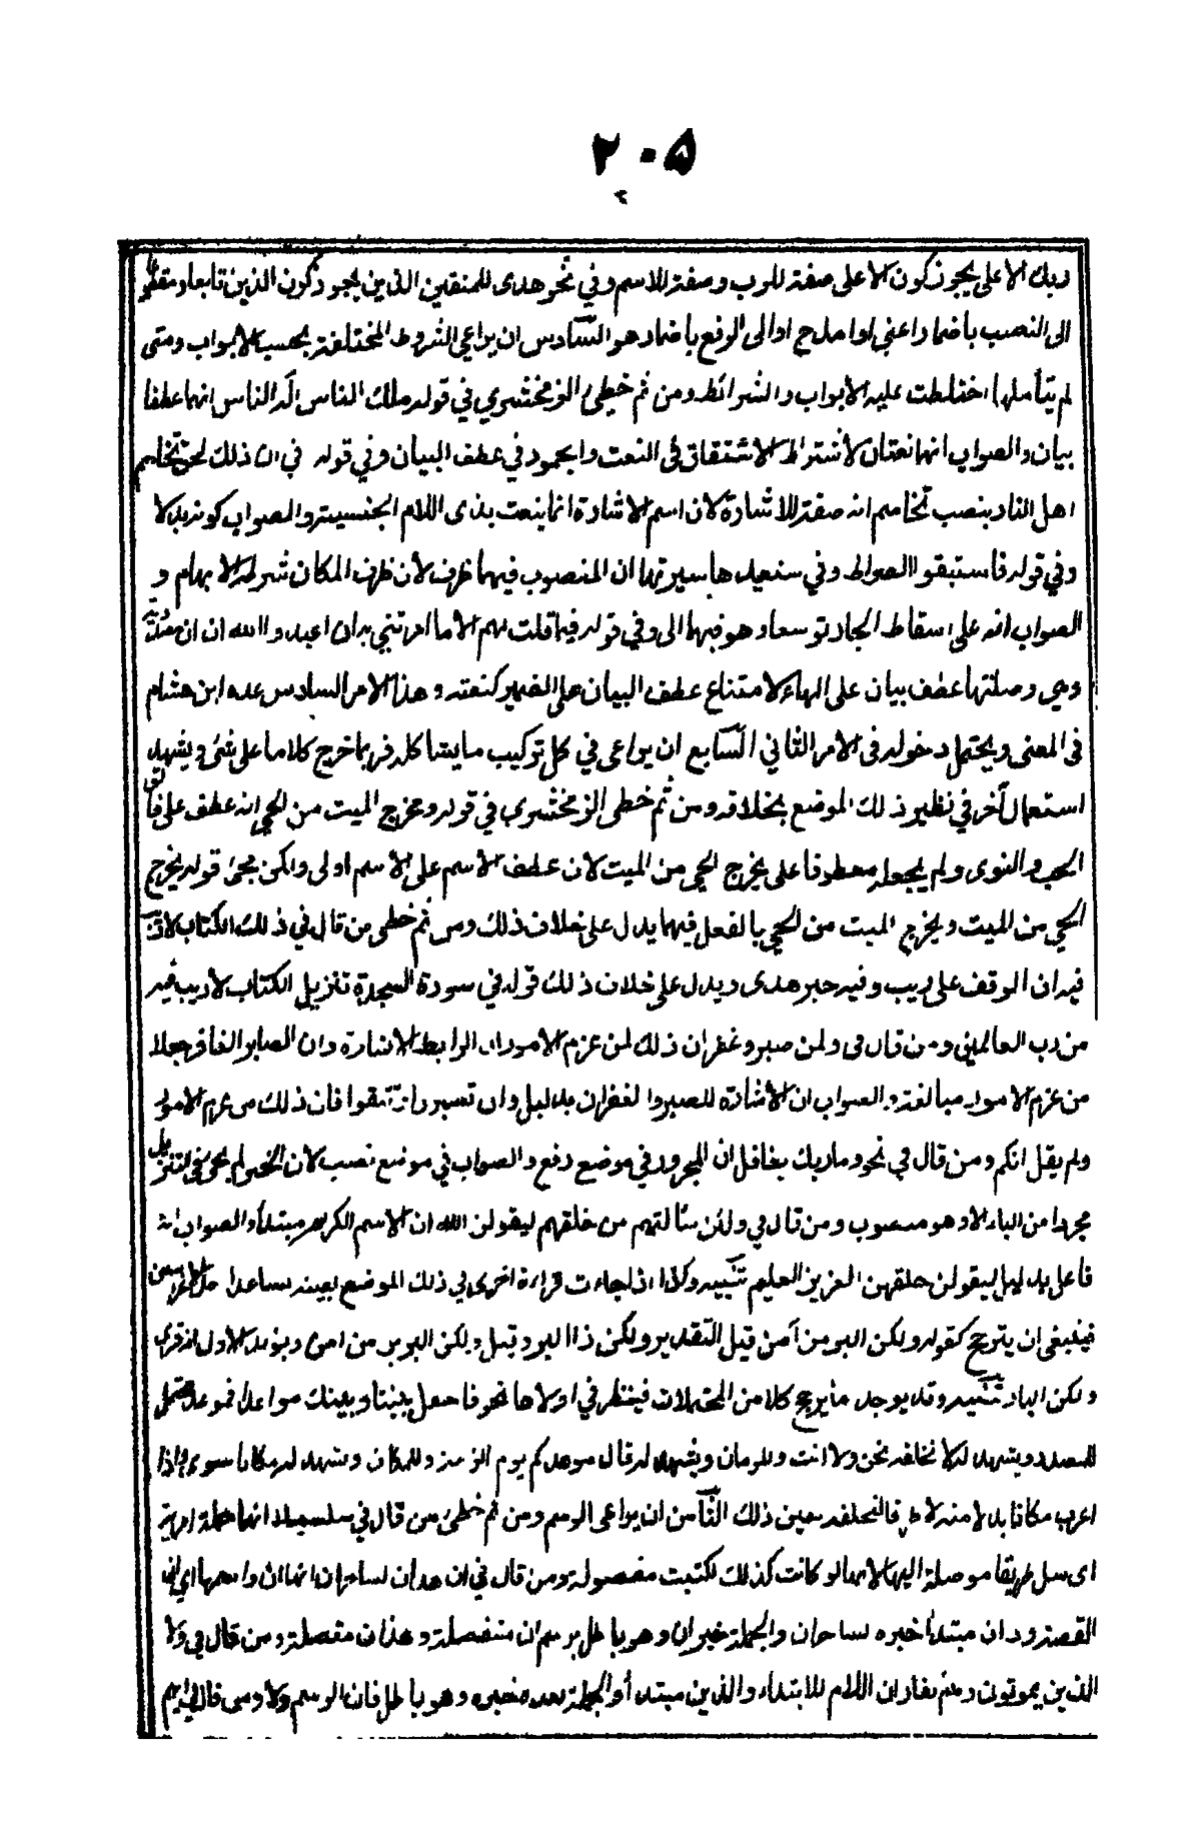 ٢٠٥
ربك الاعلى يجوز كون الاعلى صفة للرب وصفة للاسم وفي نحو هدى للمتقين الذين يجوز كون الذين تابعا ومقطوعا
الى النصب باضمار اعني او امدح او الى الرفع باضمار هو السادس ان يراعي الشروط المختلفة بحسب الابواب ومتى
لم يتأملها اختلطت عليه الأبواب والشرائط ومن ثم خطئ الزمخشري في قوله ملك الناس اله الناس انهما عطفا
بيان والصواب انهما نعتان لأشتراط الاشتقاق فى النعت والجمود في عطف البيان وفي قوله في ان ذلك لحق تخاصم
اهل النار بنصب تخاصم انه صفة للاشارة لان اسم الاشارة انما ينعت بذى اللام الجنسية والصواب كونه بدلا
وفي قوله فاستبقوا الصراط وفي سنعيدها سيرتها ان المنصوب فيهما ظرف لأن ظرف المكان شرطه الابهام و
الصواب انه على اسقاط الجار توسعا وهو فيهما الى وفي قوله فيما قلت لهم الا ما امرتني به ان اعبدوا الله ان ان مصدرية
وهي وصلتها عطف بيان على الهاء لامتناع عطف البيان على الضمير كنعته وهذا الامر السادس عده ابن هشام
فى المعنى ويحتمل دخوله فى الامر الثاني السابع ان يراعى في كل تركيب ما يشاكله فربما خرج كلاما على شئ ويشهد
استعمال آخر في نظير ذلك الموضع بخلافه ومن ثم خطى الزمخشرى في قوله ومخرج الميت من الحي انه عطف على فالق
الحب والنوى ولم يجعله معطوفا على يخرج الحي من الميت لان عطف الاسم على الاسم اولى ولكن مجئ قوله يخرج
الحي من الميت ويخرج الميت من الحي بالفعل فيهما يدل على خلاف ذلك ومن ثم خطى من قال في ذلك الكتاب لاريب
فيه ان الوقف على ريب وفيه خبر هدى ويدل على خلاف ذلك قوله في سورة السجدة تنزيل الكتاب لاريب فيه
من رب العالمين ومن قال فى ولمن صبر وغفر ان ذلك لمن عزم الامور ان الرابط الاشارة وان الصابر الغافر جعلا
من عزم الامور مبالغة والصواب ان الاشارة للصبر والغفران بدليل وان تصبروا وتتقوا فان ذلك من عزم الامور
ولم يقل انكم ومن قال في نحو وما ربك بغافل ان المجرور في موضع رفع والصواب في موضع نصب لان الخبر لم يجئ في التنزيل
مجردا من الباء الا وهو منصوب ومن قال في ولئن سألتهم من خلقهم ليقولن الله ان الاسم الكريم مبتدأ والصواب انه
فاعل بدليل ليقولن خلقهن العزيز العليم تنبيه وكذا اذا جاءت قراءة اخرى في ذلك الموضع بعينه تساعد احد الاعرابين
فينبغى ان يترجح كقوله ولكن البر من آمن قيل التقدير ولكن ذا البر وقيل ولكن البر بر من امن ويؤيد الاول انه قرئ
ولكن البار تنبيه وقد يوجد ما يرجح كلا من المحتملات فينظر في اولاها نحو فاجعل بيننا وبينك موعدا فموعد محتمل
للمصدر ويشهد له لا نخلفه نحن ولا انت وللزمان ويشهد له قال موعدكم يوم الزينة وللمكان ويشهد له مكانا سوى واذا
اعرب مكانا بدلا منه لا ظرفا لنخلفه تعين ذلك الثامن ان يراعى الرسم ومن ثم خطئ من قال في سلسبيلا انها جملة امرية
اى سل طريقا موصلة اليها لانها لو كانت كذلك لكتبت مفصولة ومن قال في ان هذان لساحران انها ان واسمها اي ان
القصة وذان مبتدأ خبره لساحران والجملة خبر ان وهو باطل برسم ان منفصلة وهذان متصلة ومن قال في ولا
الذين يموتون وهم كفار ان اللام للابتداء والذين مبتدأ والجملة بعده خبره وهو باطل فان الرسم ولا ومن قال في ايهم